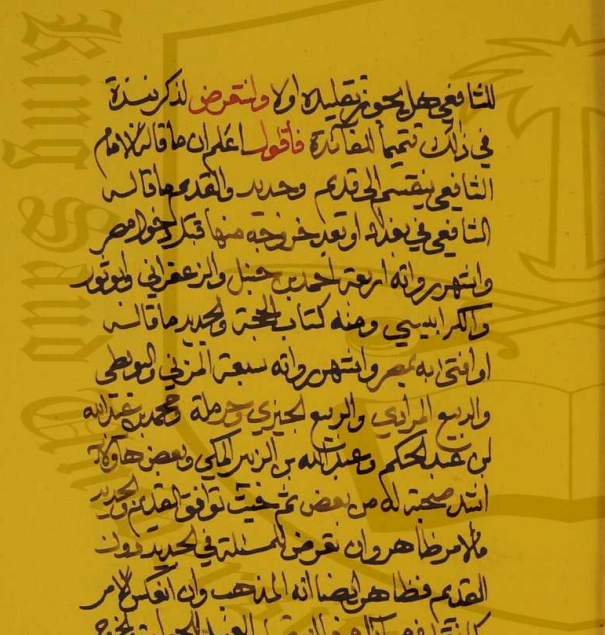 للشافعي هل يجوز تقليده اولا ولنتعرض لذكر نبذة
في ذلك تتميما للفائدة فأقول اعلم ان ما قاله الامام
الشافعي ينقسم الى قديم وجديد والقديم ما قاله
الشافعي في بغداد او بعد خروجه منها قبل دخوله مصر
واشهر رواته اربعة احمد بن حنبل والزعفراني وابو ثور
والكرابيسي ومنه كتاب الحجة والجديد ما قاله
او افتى به بمصر واشهر رواته سبعة المزني والبويطي
والربيع المرادي والربيع الجيزي وحرملة ومحمد بن عبد الله
بن عبد الحكم وعبد الله بن الزبير المكي وبعض هاولاء
اشد صحبة له من بعض ثم حيث توافق القديم والجديد
فالامر ظاهر وان تعرض للمسئلة في الجديد دون
القديم فظاهر ايضا انه المذهب وان انعكس الامر
King Saud